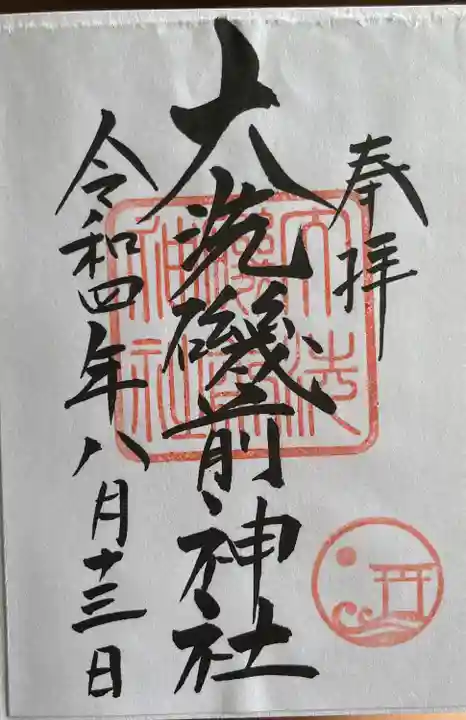 奉拝
大洗磯前神社
令和四年八月十三日
大洗磯前神社